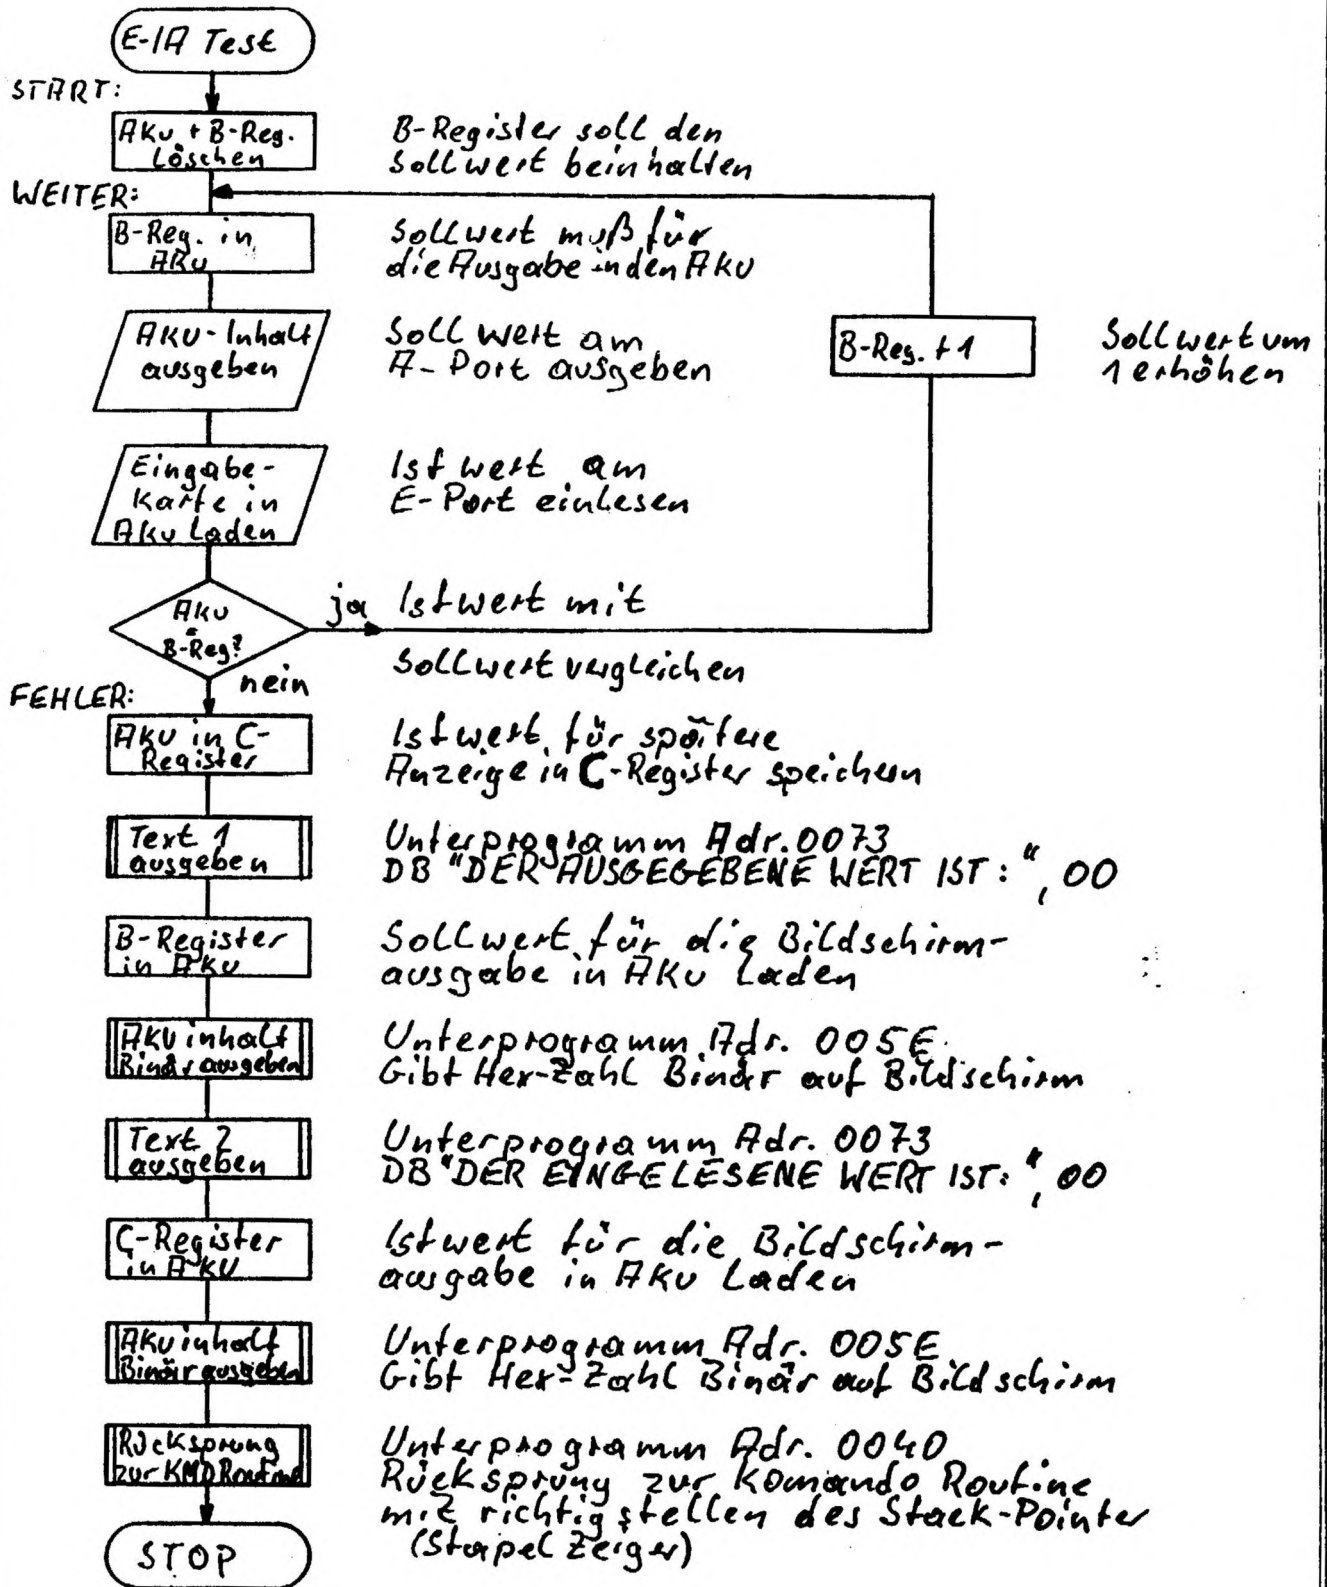 E-/A Test
START:
Aku + B-Reg.
Löschen
B-Register soll den
Sollwert beinhalten
WEITER:
B-Reg. in
Aku
Sollwert muß für
die Ausgabe in den Aku
Aku-Inhalt
ausgeben
Soll wert am
A-Port ausgeben
B-Reg. + 1
Sollwert um
1 erhöhen
Eingabe-
Karte in
Aku Laden
Istwert am
E-Port einlesen
Aku
=
B-Reg?
ja
Istwert mit
Sollwert vergleichen
nein
FEHLER:
Aku in C-
Register
Istwert für spätere
Anzeige in C-Register speichern
Text 1
ausgeben
Unterprogramm Adr. 0073
DB "DER AUSGEGEBENE WERT IST: ", 00
B-Register
in Aku
Sollwert für die Bildschirm-
ausgabe in Aku Laden
Akuinhalt
Binär ausgeben
Unterprogramm Adr. 005E
Gibt Hex-Zahl Binär auf Bildschirm
Text 2
ausgeben
Unterprogramm Adr. 0073
DB "DER EINGELESENE WERT IST: ", 00
C-Register
in Aku
Istwert für die Bildschirm-
ausgabe in Aku Laden
Akuinhalt
Binär ausgeben
Unterprogramm Adr. 005E
Gibt Hex-Zahl Binär auf Bildschirm
Rücksprung
zur KMD Routine
Unterprogramm Adr. 0040
Rücksprung zur Komando Routine
mit richtig stellen des Stack-Pointer
(Stapel Zeiger)
STOP